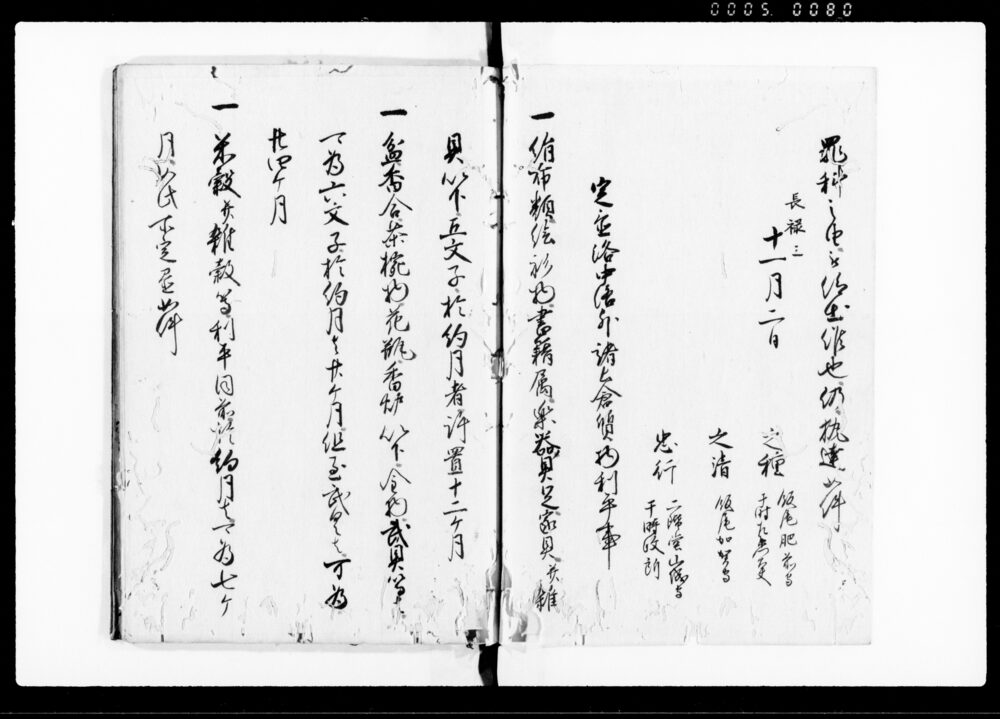 0005 0080
罪科之由被仰出候也仍執達如件
長禄三
十一月二日
之種 飯尾肥前守
于時左衛門大夫
之清 飯尾加賀守
忠行 二階堂山城守
于時政所
定置洛中洛外諸土倉質物利平事
一 絹布類絵衫物書籍属楽器具足家具并雑
具以下五文子於約月者許置十二ケ月
一 盆香合茶椀物花瓶香炉以下金物武具等者
可為六文子於約月者廿ケ月但至武具者可為
廿四ケ月
一 米穀并雑穀等利平同前於約月者可為七ケ
月以氏不定置如件